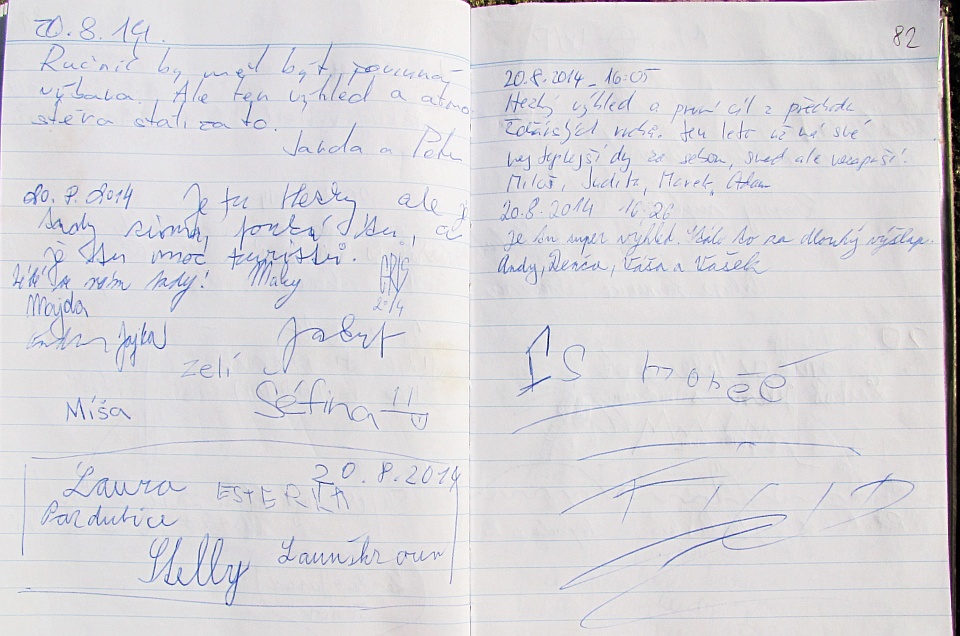 20.8.14.
Ručník by měl být povinná
výbava. Ale ten výhled a atmo-
sféra stáli za to.
Janda a Petr
20.8.2014 Je tu Hezky ale je
tady zima, fouká tu, a
je tu moc turistů.
Líbí se nám tady! Maky
2014
Majda
Jajka
zelí
Míša Séfina
Laura 20.8.2014
ESTERKA
Pardubice
Stelly Lanškroun
82
20.8.2014 - 16:05
Hezký výhled a první cíl z přechodu
Žďárských vrchů. Ten leto už má své
nejteplejší dny za sebou, snad ale nezaprší!
Miloš, Judita, Marek, Adam
20.8.2014 16:26
Je tu super výhled. Stálo to za dlouhý výšlap.
Andy, Denča, Váša a Vašek